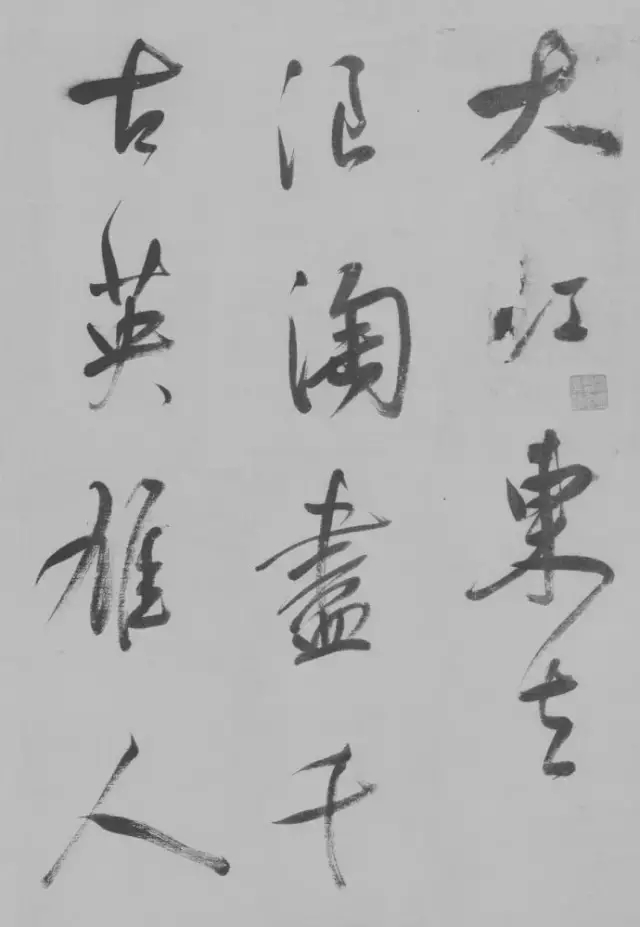 大江東去
浪淘盡千
古英雄人